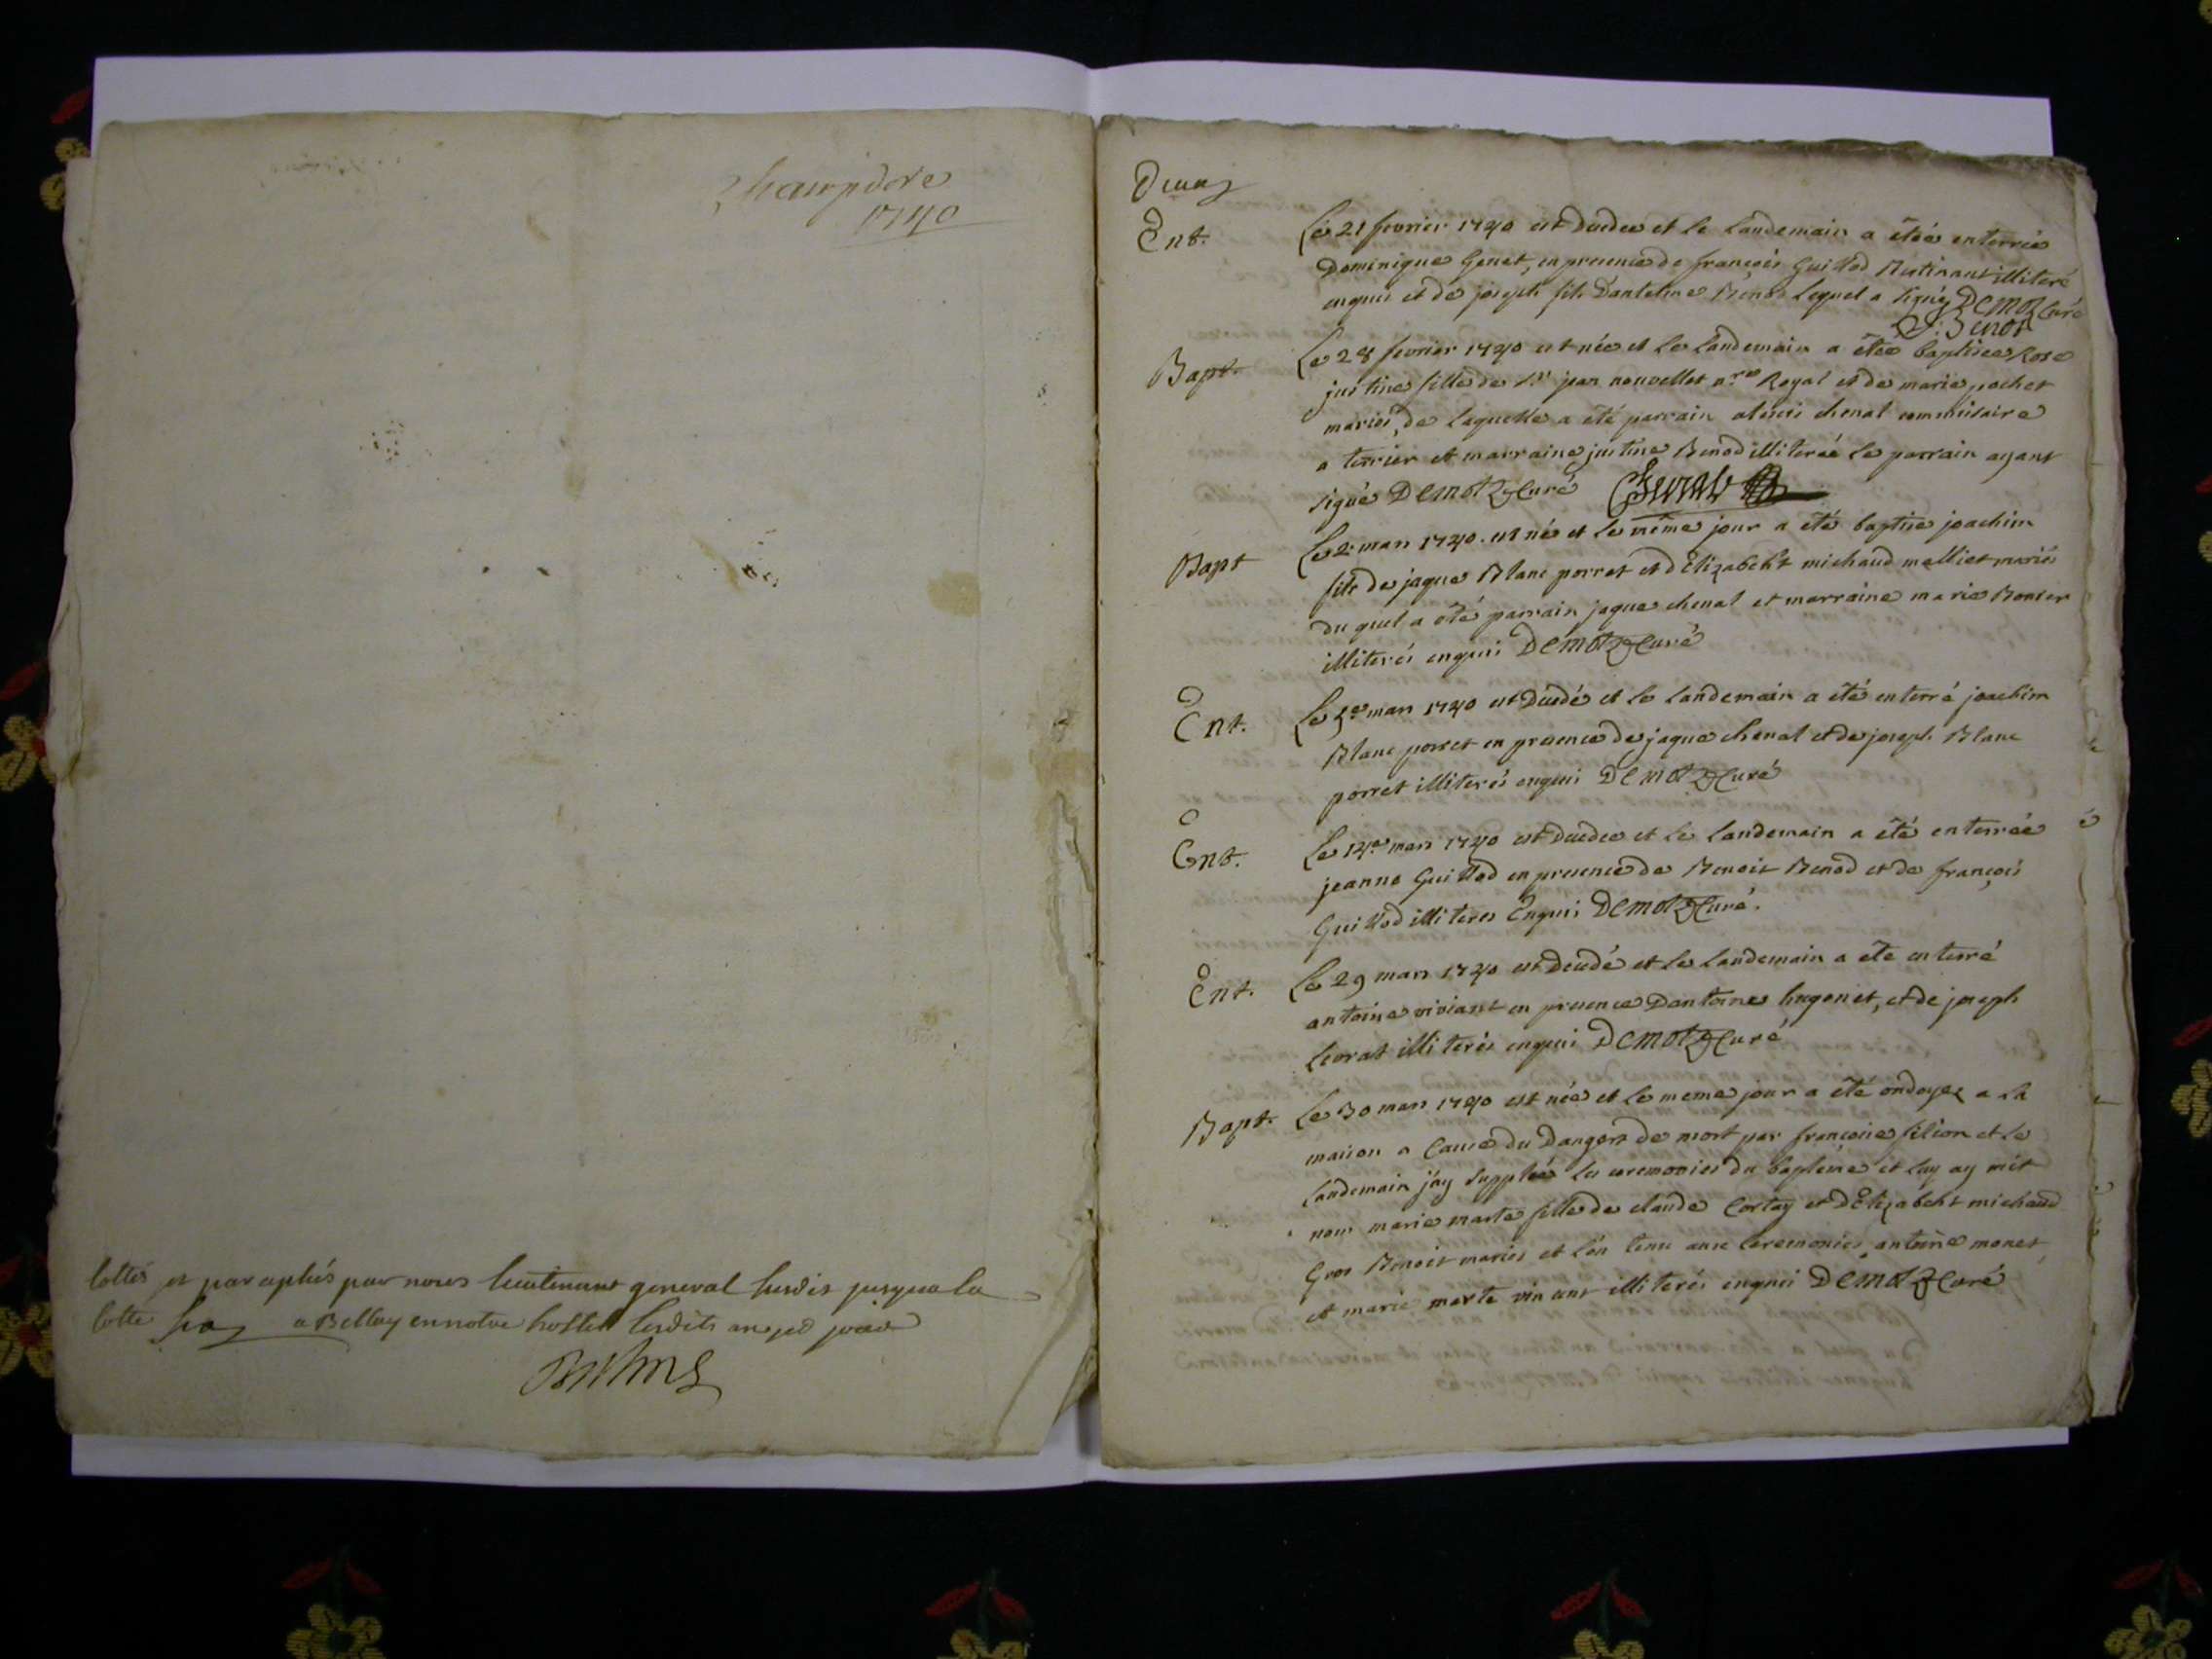 Champdore
1740
Cottés et paraphés par nous lieutenant general susdit jusqua la
Cotte six a Belley en notre hostel lesdits an et jour
Deux
Ent. Le 21 fevrier 1740 est decedee et le landemain a étéé enterrée
Dominique Genet, en presence de françois Guillod illiteré
enquis et de joseph fils Dantelme Benod lequel a signé Demotz Curé
J. Benod
Bapt. Le 28 fevrier 1740 est née et le landemain a étée baptisee Rose
justine fille de Sr jean nouvellet nre Royal et de marie pochet
mariés, de laquelle a été parrain alexis chenal commissaire
a terrier et marraine justine Benod illiterée le parrain ayant
signé Demotz Curé Chenal
Bapt Le 2e mars 1740. est né et le même jour a été baptise joachim
fils de jaque Blanc porret et d Elizabeht michaud malliet mariés
du quel a été parrain jaque chenal et marraine marie Monier
illiterés enquis Demotz Curé
Ent. Le 5e mars 1740 est decedé et le landemain a été enterré joachim
Blanc porret en presence de jaque chenal et de joseph Blanc
porret illiterés enquis Demotz Curé
Ent. Le 14e mars 1740 est decedee et le landemain a été enterrée
jeanne Guillod en presence de Benoit Benod et de françois
Guillod illiteres Enquis Demotz Curé.
Ent. Le 29 mars 1740 est decedé et le landemain a éte enterré
antoine viviant en presence Dantoine hugonet, et de joseph
Leorat illiterés enquis Demotz Curé
Bapt. Le 30 mars 1740 est née et le meme jour a été ondoyee a la
maison a Cause du Dangers de mort par françoise filion et le
landemain jáy Supplée les ceremonies du baptéme et luy ay mit
nom marie marte fille de claude Cortay et dElizabeht michaud
Gros Benoit mariés et lón tenu aux Ceremonies antoine monet
et marie marte illiterés enquis Demotz Curé